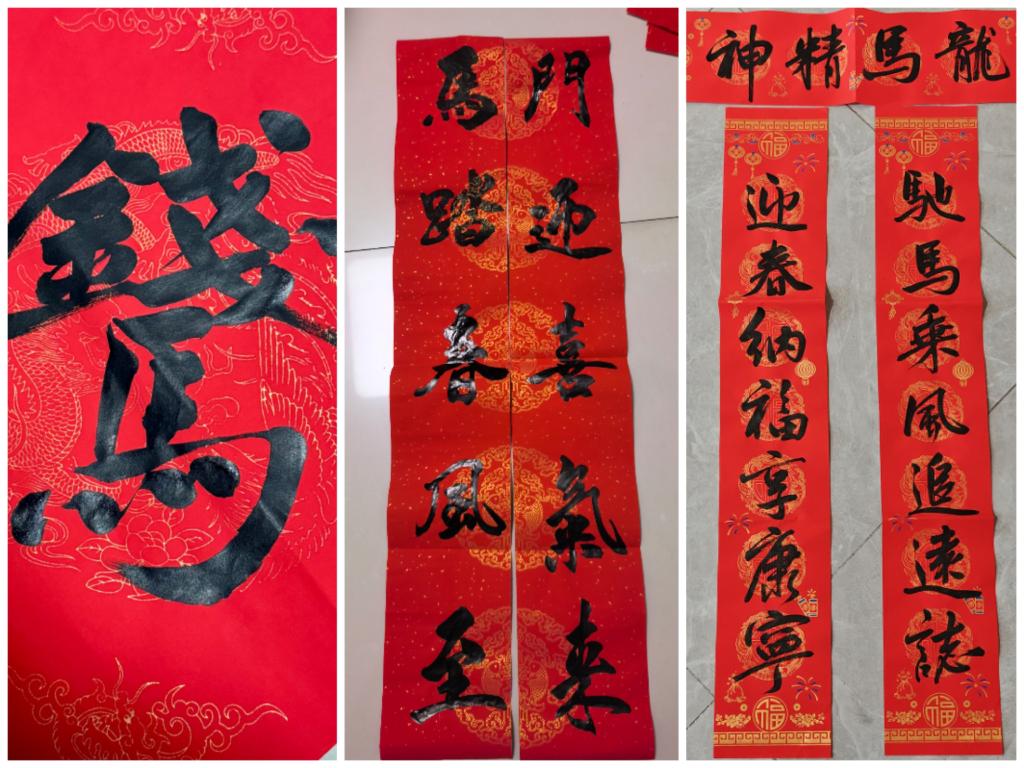 錢馬
馬踏春風至
門迎喜氣来
龍馬精神
馳馬乘風追遠誌
迎春納福享康寧
福
福
福
福